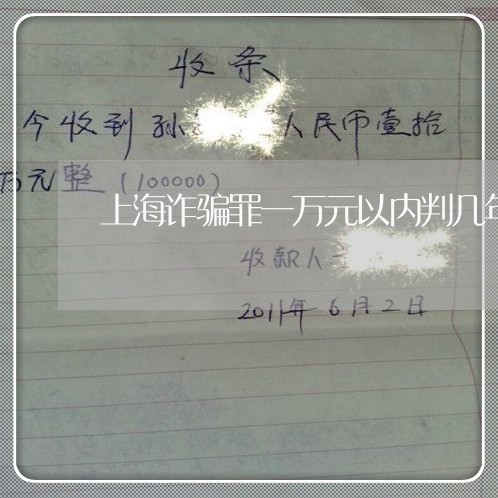 收条
今收到孙 人民币壹拾
万元整（100000）
上海诈骗罪一万元以内判几年
收款人
2011年6月2日